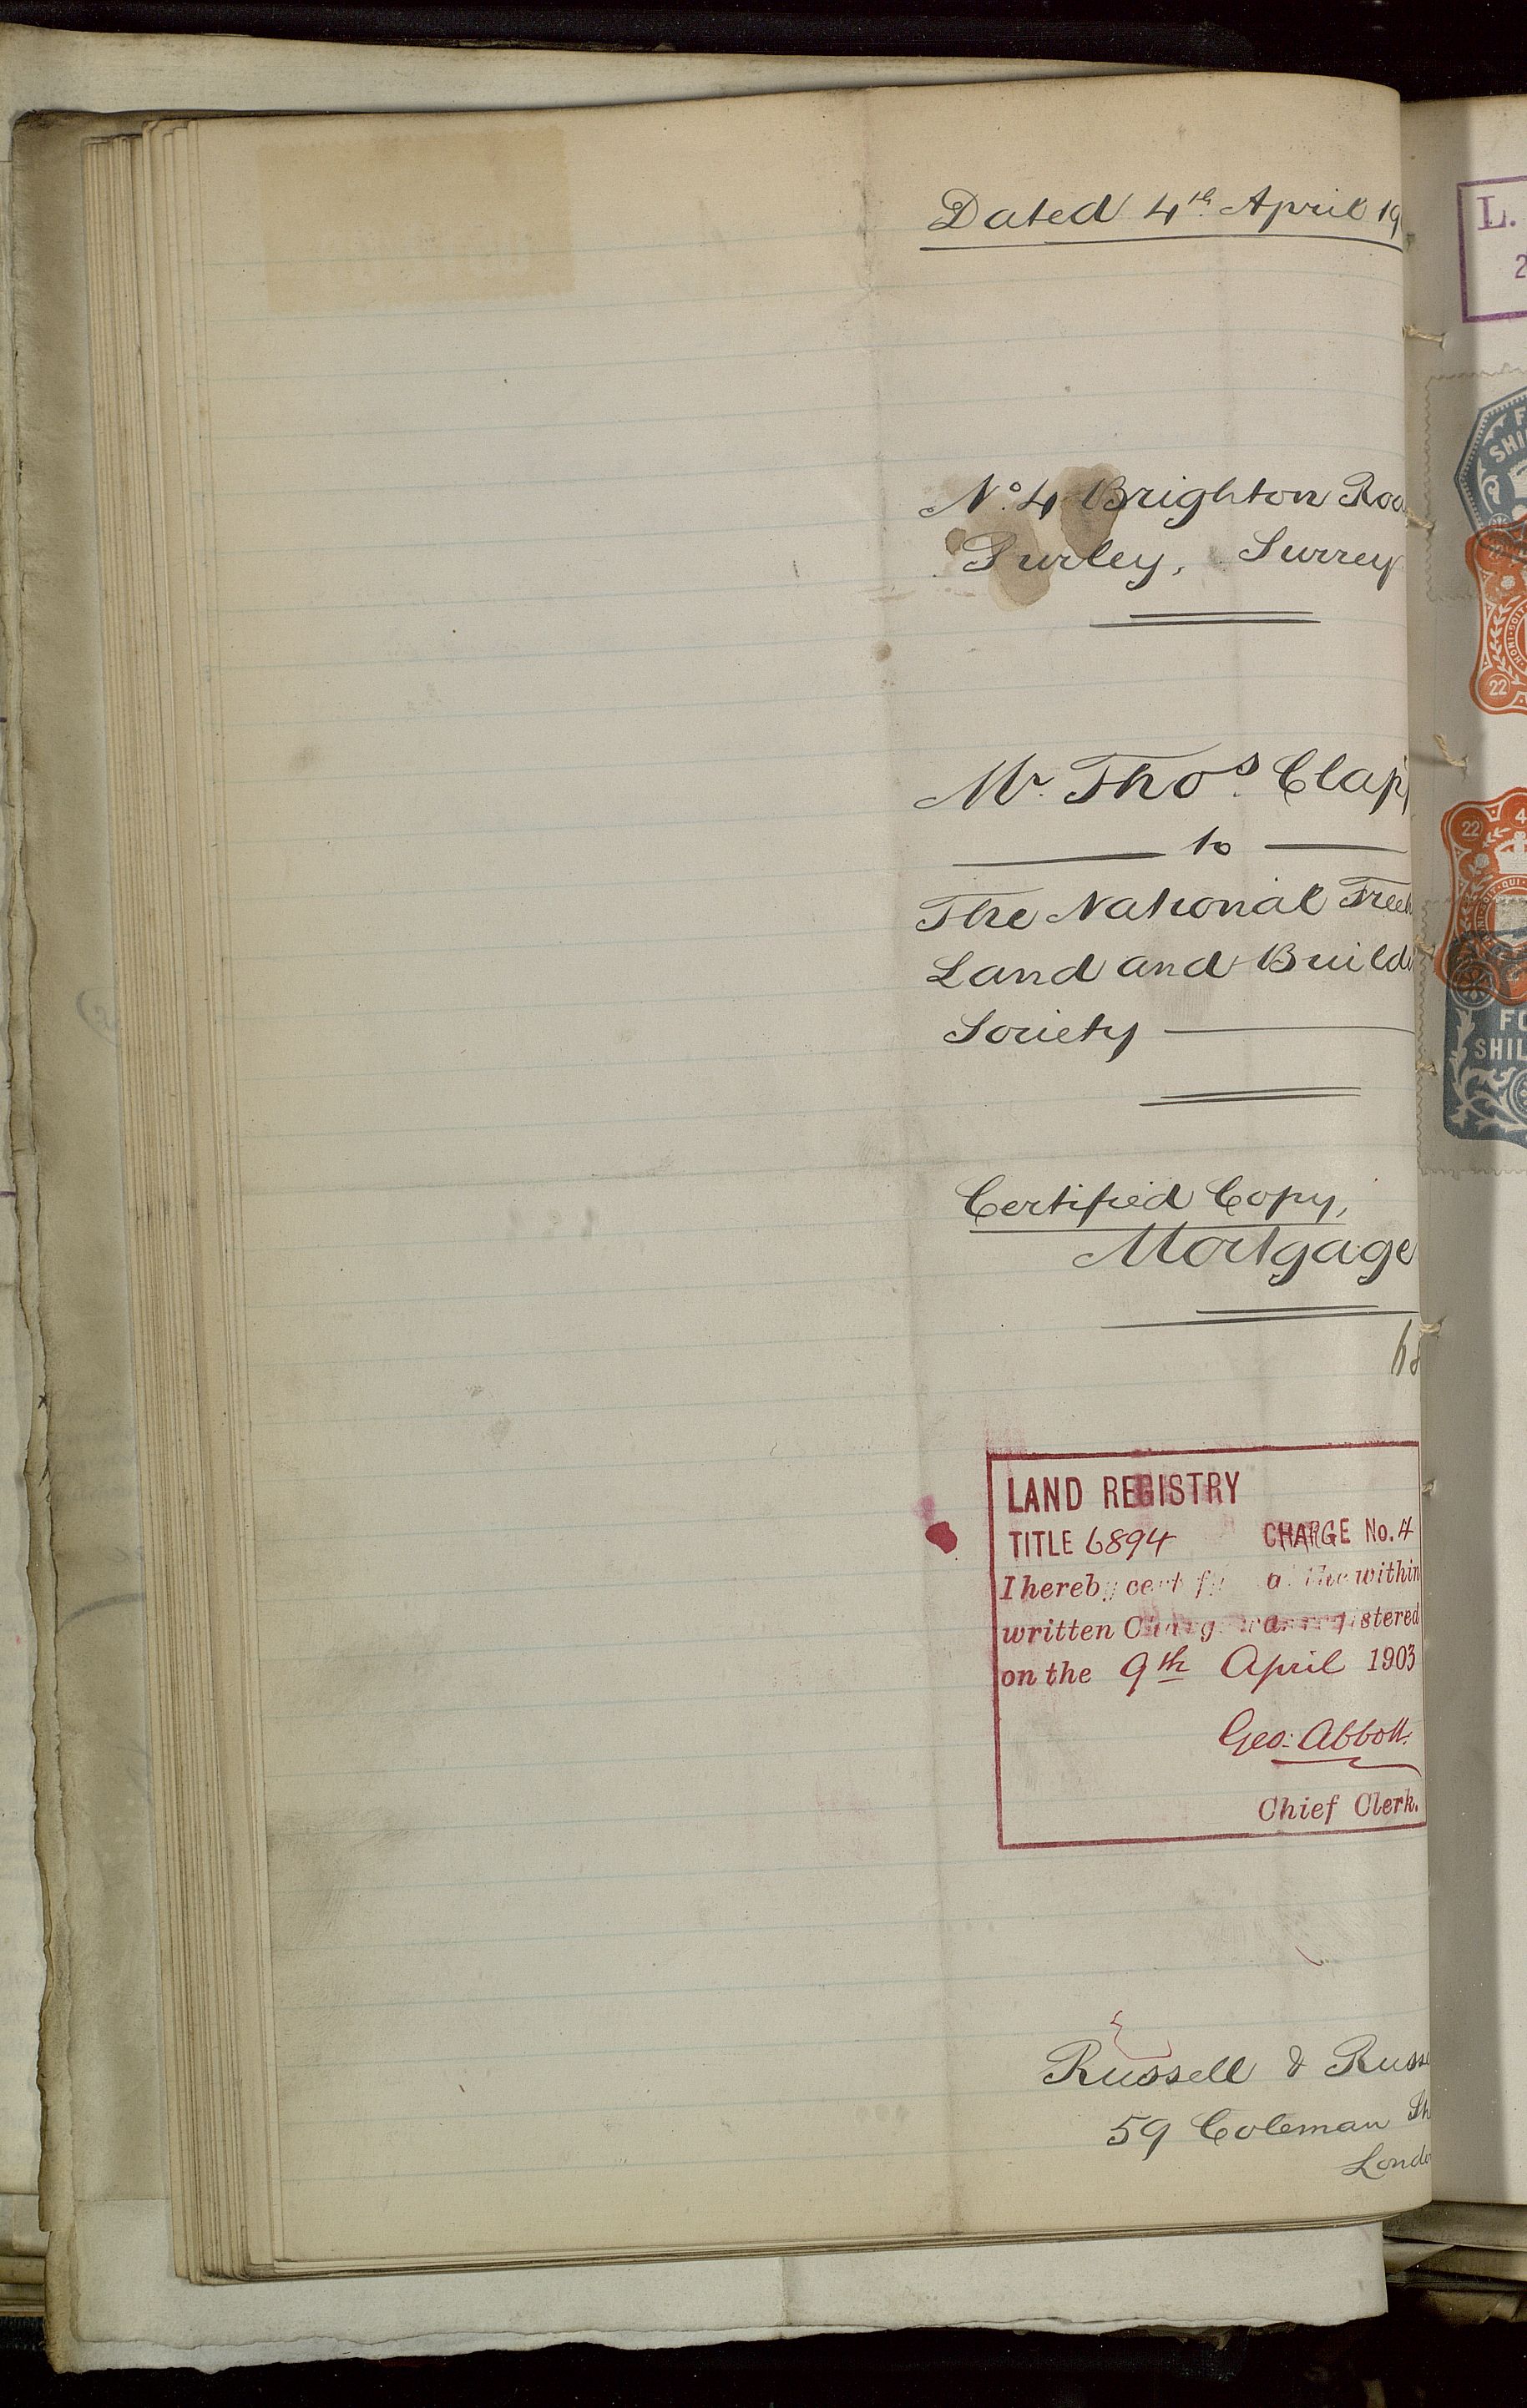 Dated 4th April 19
No. 4 Brighton Roa
Purley, Surrey
Mr. Thos. Clap
to
The National Freeh
Land and Build
Society
Certified Copy,
Mortgage
LAND REGISTRY
TITLE 6894 CHARGE No. 4
I hereby certify the within
written Charge was registered
on the 9th April 1903
Geo: Abbott.
Chief Clerk.
Russell & Russe
59 Coleman
Londo
L.
2
SHI
22
HONI·SOIT
22
22 4
QUI
FO
SHIL